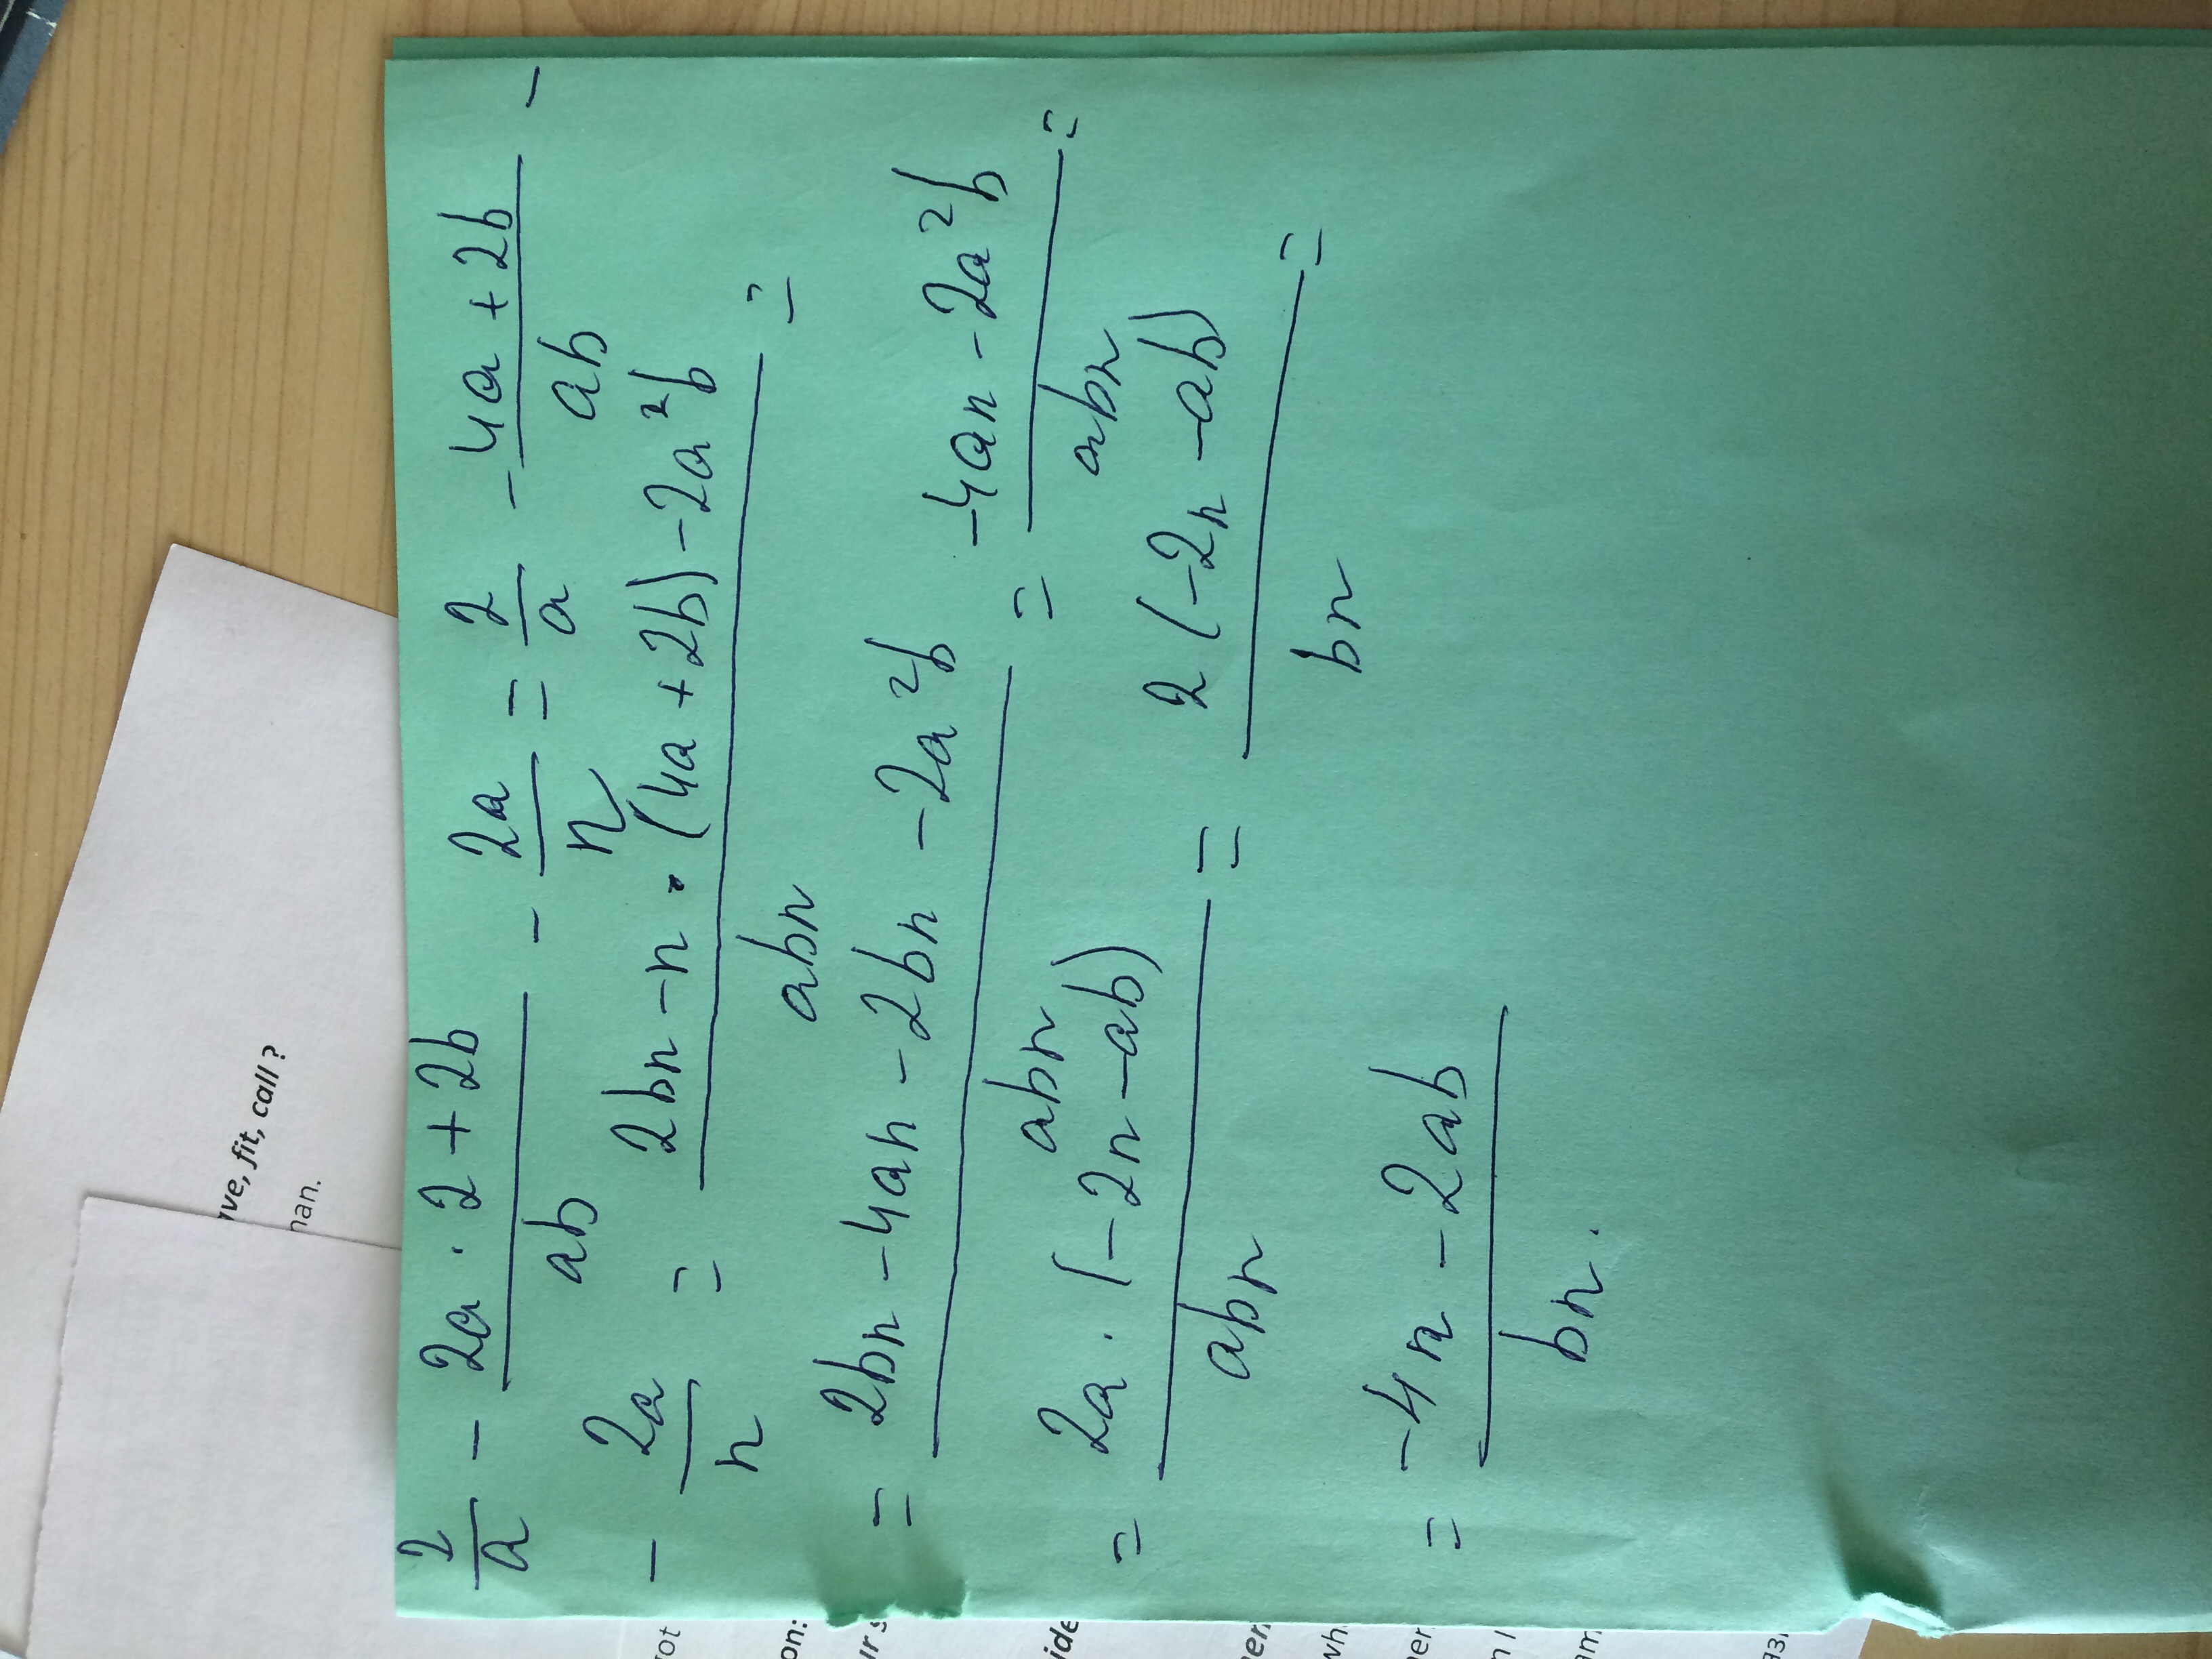 2/a - (2a · 2 + 2b)/ab - 2a/n = 2/a - (4a + 2b)/ab -
- 2a/n = (2bn - n · (4a + 2b) - 2a²b)/abn =
= (2bn - 4an - 2bn - 2a²b)/abn = (-4an - 2a²b)/abn =
= (2a · (-2n - ab))/abn = (2(-2n - ab))/bn =
= (-4n - 2ab)/bn.
ive, fit, call ?
han.
rot
on:
urs
ide
wh.